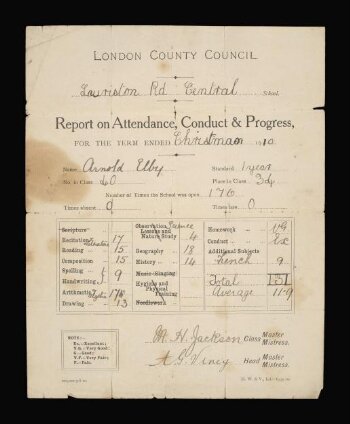 LONDON COUNTY COUNCIL
Lauriston Rd Central School.
Report on Attendance, Conduct & Progress,
FOR THE TERM ENDED Christmas 1910
Name Arnold Elby Standard 1 year
No. in Class 40 Place in Class 34
Number of Times the School was open 176
Times absent 9 Times late 0
Recitation 17
Reading 15
Composition 15
Spelling
Handwriting 9
Arithmetic
Drawing 13
Observation Science
Lessons and
Nature Study 4
Geography 18
History 14
Music-Singing
Hygiene and
Physical
Training
Needlework
Homework V.G
Conduct Exc
Additional Subjects
French 9
Total 131
Average 11.9
NOTE:
Ex.—Excellent;
V.G.—Very Good;
G.—Good;
V.F.—Very Fair;
F.—Fair.
M. H. Jackson Class Master Mistress.
A G Viney Head Master Mistress.